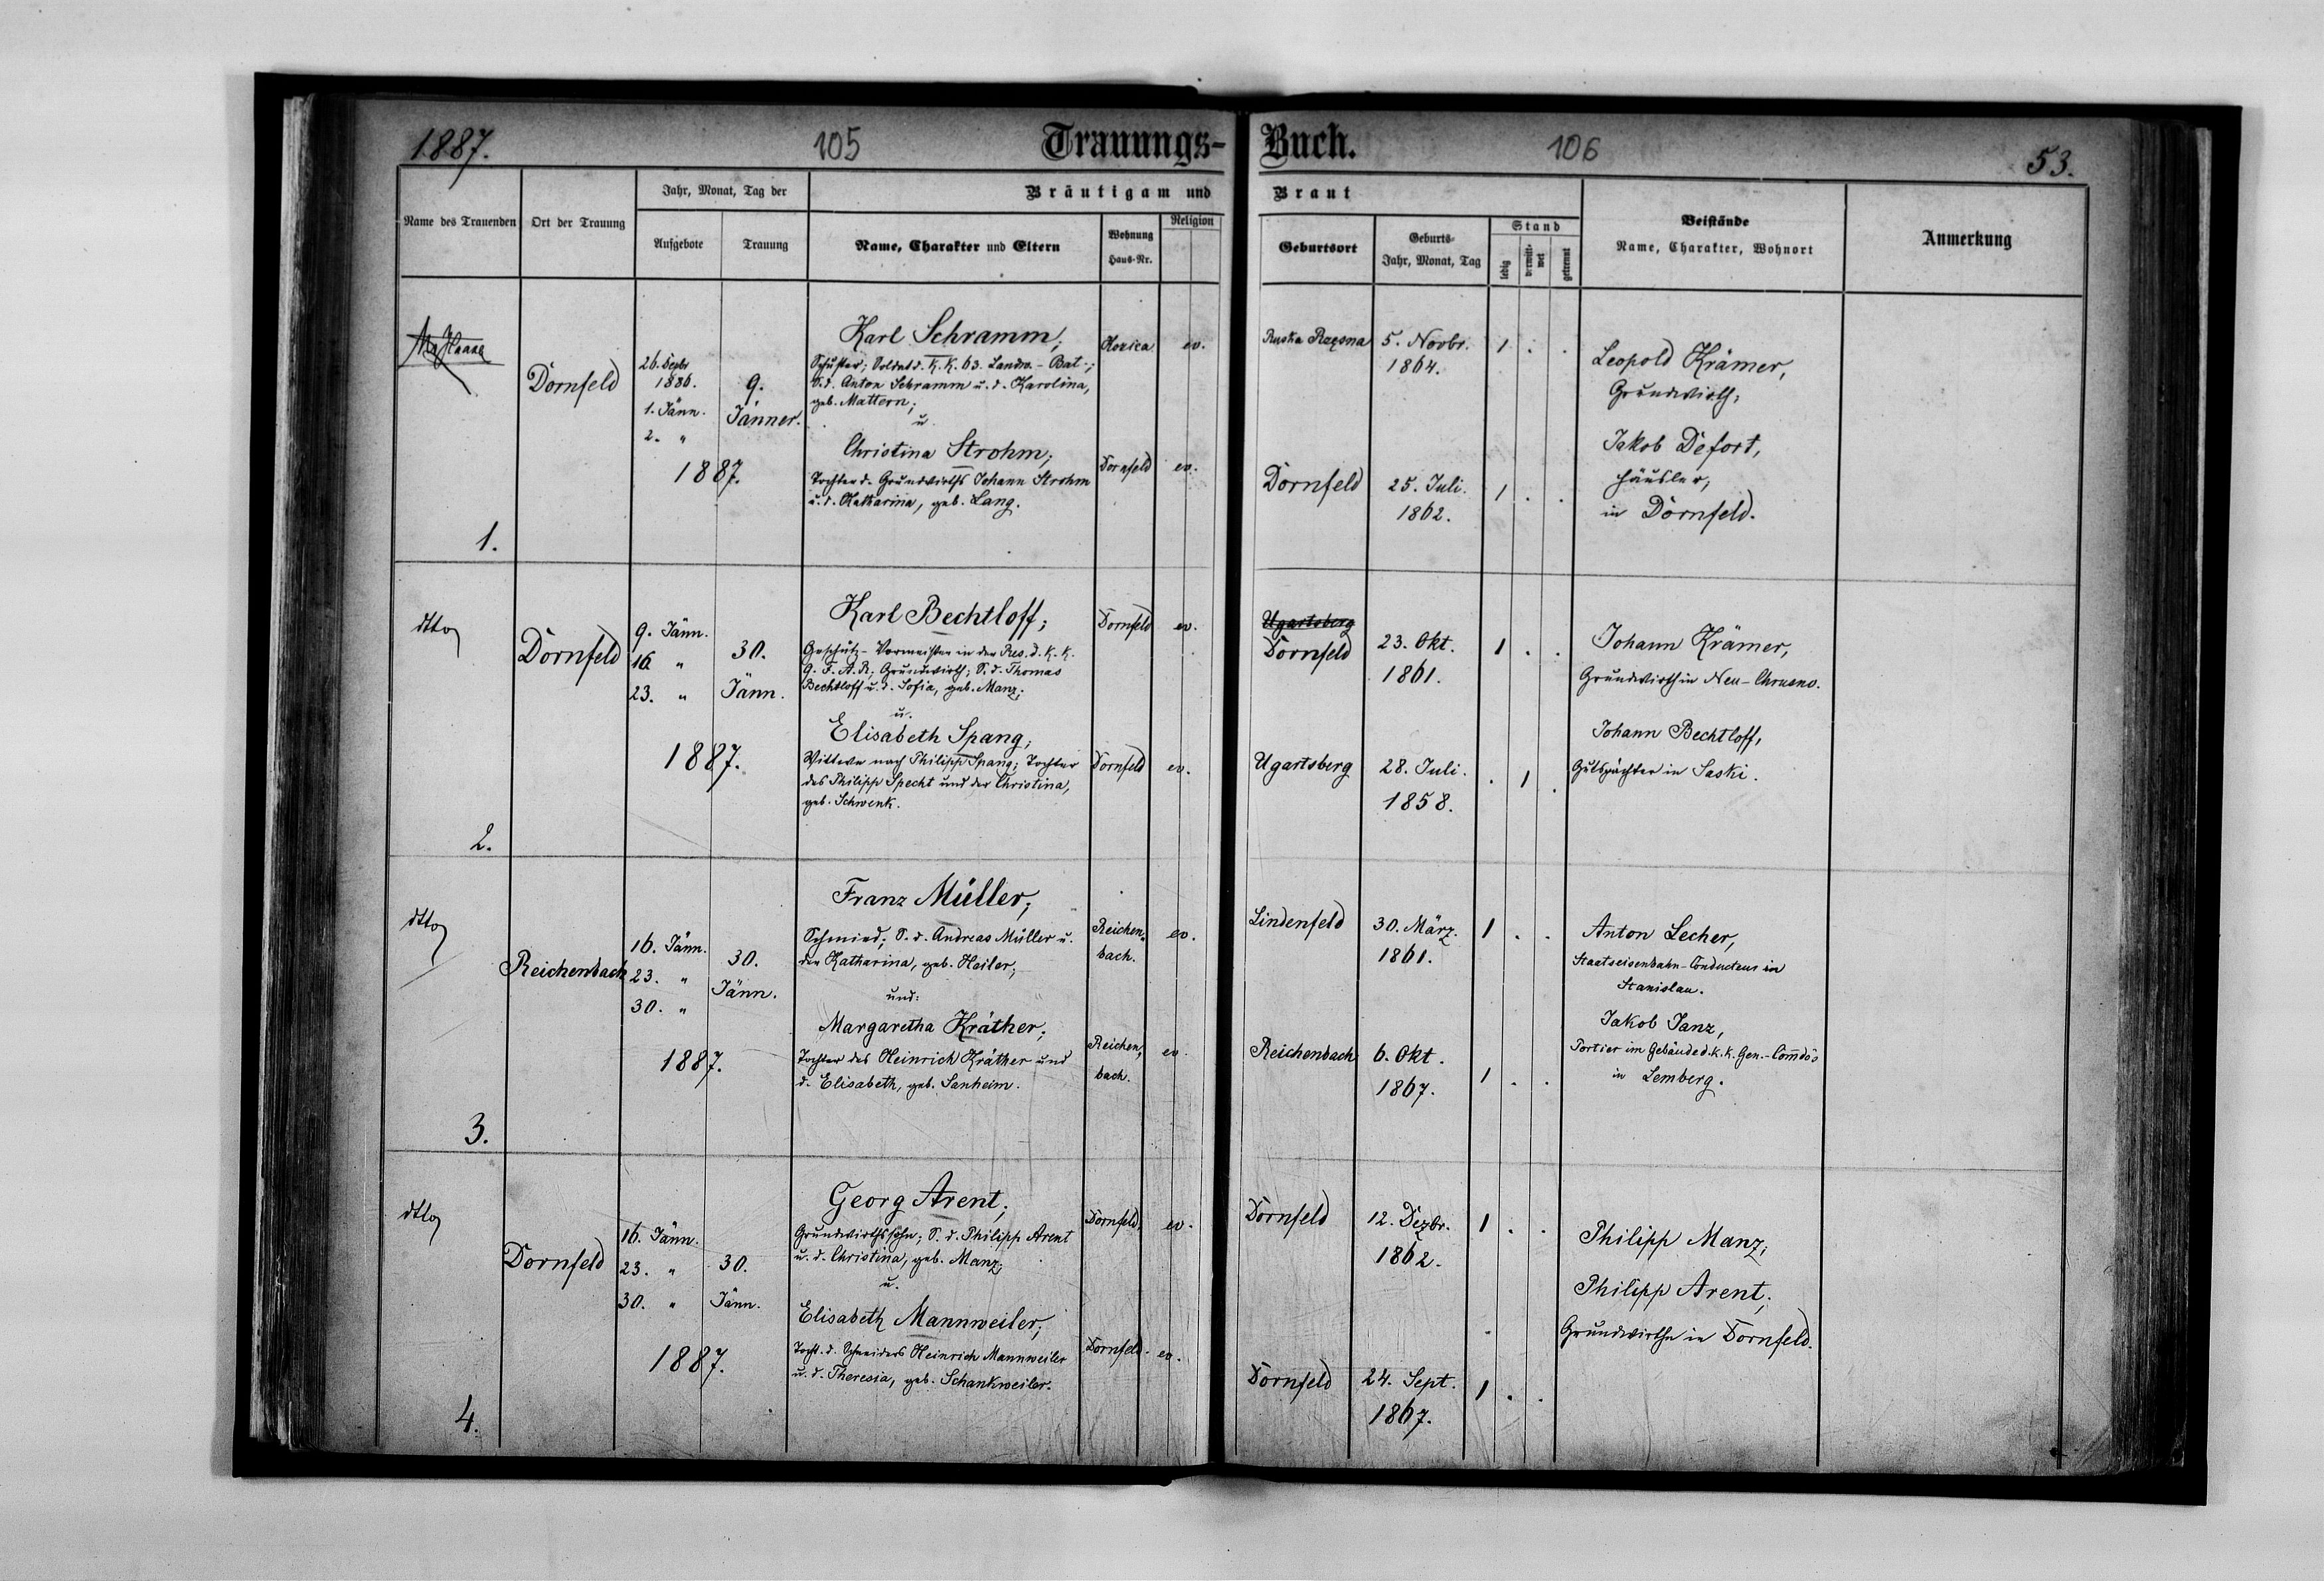 1887.
105
Trauungs-
Buch.
106
53.
Name des Trauenden
Ort der Trauung
Jahr, Monat, Tag der
Aufgebote
Trauung
Bräutigam und
Braut
Name, Charakter und Eltern
Wohnung
Haus-Nr.
Religion
Geburtsort
Geburts-
Jahr, Monat, Tag
Stand
ledig
verwitt-
wet
getrennt
Beistände
Name, Charakter, Wohnort
Anmerkung
Haase
Dornfeld
26. Dezbr
1886.
1. Jänn.
2. "
9.
Jänner.
1887.
Karl Schramm;
Schuster; Soldat d. K. K. 63. Landw.-Bat.;
S. d. Anton Schramm u. d. Karolina,
geb. Mattern;
u.
Christina Strohm;
Tochter d. Grundwirths Johann Strohm
u. d. Katharina, geb. Lang.
Kozica
ev.
Dornfeld
ev.
Ruska Rzęsna
5. Novbr.
1864.
1 . .
Dornfeld
25. Juli.
1862.
1 . .
Leopold Krämer,
Grundwirth;
Jakob Defort,
Häusler,
in Dornfeld.
1.
dtto
Dornfeld
9. Jänn.
16 "
23. "
30.
Jänn.
1887.
Karl Bechtloff;
Geschütz-Vormeister in der Res. d. K. K.
9. F. A. R.; Grundwirth; S. d. Thomas
Bechtloff u. d. Sofia, geb. Manz;
u.
Elisabeth Spang;
Wittwe nach Philipp Spang; Tochter
des Philipp Specht und der Christina,
geb. Schwenk.
Dornfeld
ev.
Dornfeld
ev.
Ugartsberg
Dornfeld
23. Okt.
1861.
1 . .
Ugartsberg
28. Juli.
1858.
. 1 .
Johann Krämer,
Grundwirth in Neu-Chrusno.
Johann Bechtloff,
Gutspächter in Saski.
2.
dtto
Reichenbach
16. Jänn.
23. "
30. "
30.
Jänn.
1887.
Franz Müller;
Schmied; S. d. Andreas Müller u.
der Katharina, geb. Heiler;
und:
Margaretha Kräther;
Tochter des Heinrich Kräther und
d. Elisabeth, geb. Sanheim.
Reichen-
bach.
ev.
Reichen-
bach.
ev.
Lindenfeld
30. März.
1861.
1 . .
Reichenbach
6. Okt.
1867.
1 . .
Anton Lecher,
Staatseisenbahn-Conducteur in
Stanislau.
Jakob Janz,
Portier im Gebäude d. k. k. Gen.-Comdo's
in Lemberg.
3.
dtto
Dornfeld
16. Jänn.
23. "
30. "
30.
Jänn.
1887.
Georg Arent;
Grundwirthssohn; S. d. Philipp Arent
u. d. Christina, geb. Manz;
u.
Elisabeth Mannweiler;
Tocht. d. Schneiders Heinrich Mannweiler
u. d. Theresia, geb. Schankweiler.
Dornfeld.
ev.
Dornfeld.
ev.
Dornfeld
12. Dezbr.
1862.
1 . .
Dornfeld
24. Sept.
1867.
1 . .
Philipp Manz;
Philipp Arent;
Grundwirthe in Dornfeld.
4.